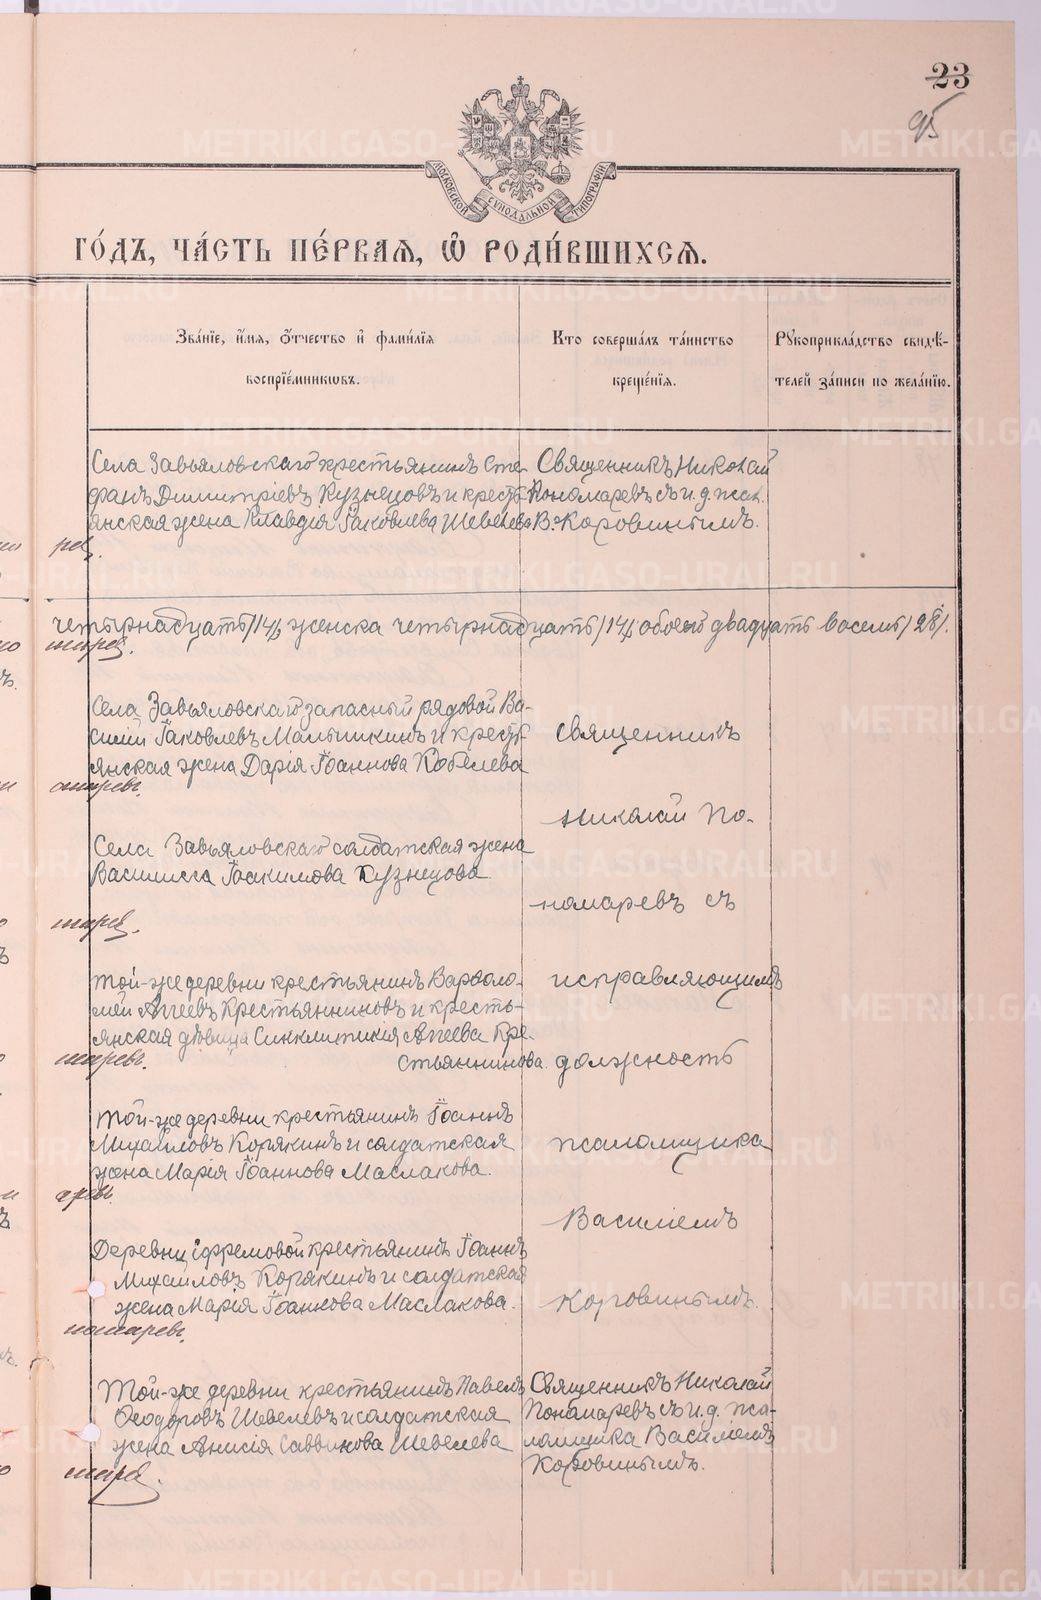 23
95
МОСКОВСКОЙ СѴНОДАЛЬНОЙ ТИПОГРАФІИ
ГО́ДЪ, ЧА́СТЬ ПЕ́РВАѦ, Ѡ҆ РОДИ́ВШИХСѦ.
Зва́нїе, и҆́мѧ, ѻ҆́тчество и҆ фамилїѧ
воспрїе́мникѡвъ.
Кто соверша́лъ та́инство
креще́нїѧ.
Рꙋкоприкла́дство свидѣ́-
телей за́писи по жела́нїю.
Села Завьяловскаго крестьянинъ Сте-
фанъ Димитріевъ Кузнецовъ и кресть-
янская жена Клавдія Іаковлева Шевелева
Священникъ Николай
Пономаревъ съ и. д. псал.
В. Коровинымъ.
четырнадцать/14/, женска четырнадцать/14/, обоего двадцать восемь/28/.
Села Завьяловскаго запасный рядовой Ва-
силій Іаковлевъ Малышкинъ и кресть-
янская жена Дарія Іоаннова Кобелева
Священникъ
Николай По-
Села Завьяловскаго солдатская жена
Василисса Іоакимова Кузнецова
номаревъ съ
Той-же деревни крестьянинъ Варѳоло-
мей Аггеевъ Крестьянниковъ и кресть-
янская дѣвица Синклитикія Аггеева Кре-
стьянникова
исправляющимъ
должность
Той-же деревни крестьянинъ Іоаннъ
Михайловъ Корякинъ и солдатская
жена Марія Іоаннова Маслакова.
псаломщика
Василіемъ
Деревни Ефремовой крестьянинъ Іоаннъ
Михайловъ Корякинъ и солдатская
жена Марія Іоаннова Маслакова.
Коровинымъ.
Той-же деревни крестьянинъ Павелъ
Ѳеодоровъ Шевелевъ и солдатская
жена Анисія Саввинова Шевелева
Священникъ Николай
Пономаревъ съ и. д. пса-
ломщика Василіемъ
Коровинымъ.